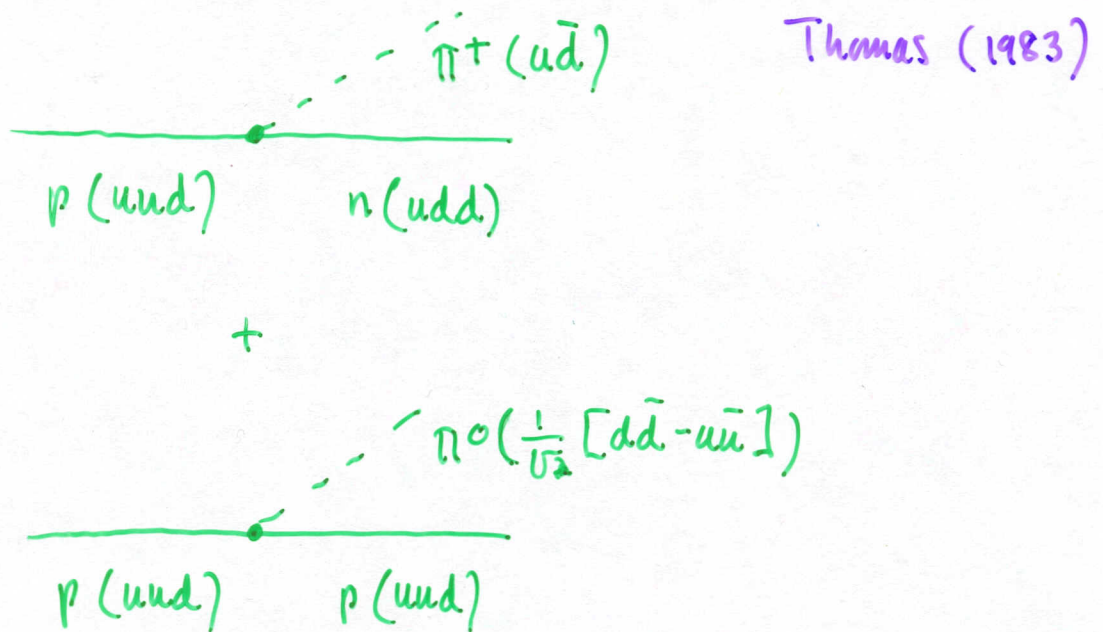 π+ (ud̄)
Thomas (1983)
p (uud)
n (udd)
+
π° (1/√2 [dd̄ - uū])
p (uud)
p (uud)